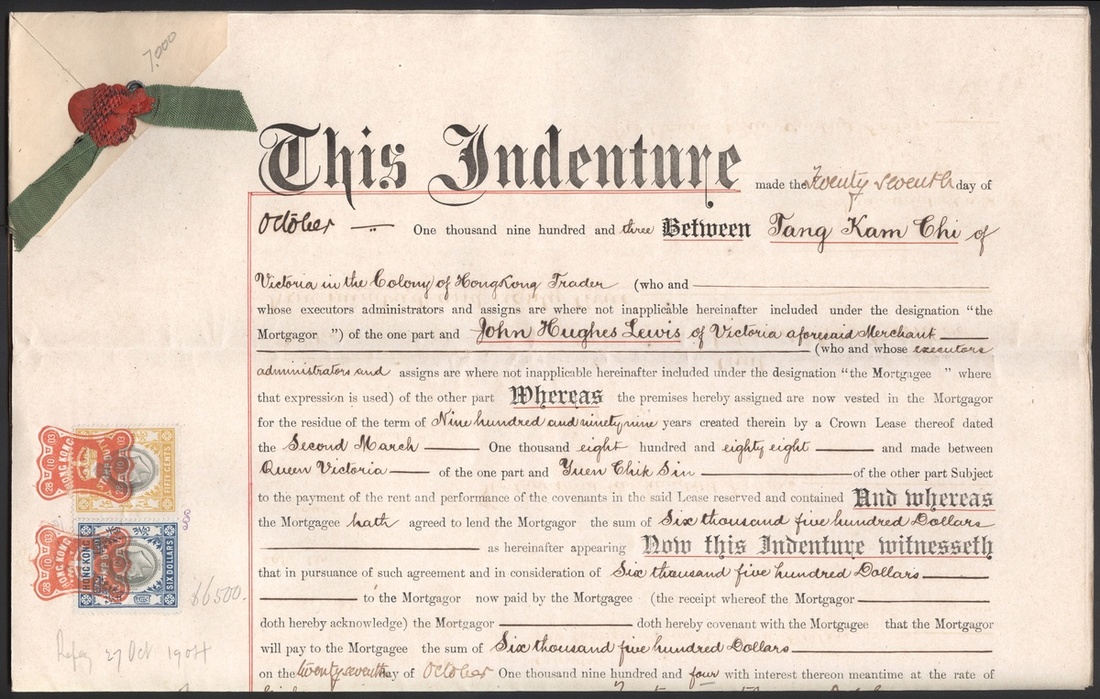 7,000
This Indenture made the Twenty seventh day of
October One thousand nine hundred and three Between Tang Kam Chi of
Victoria in the Colony of HongKong Trader (who and
whose executors administrators and assigns are where not inapplicable hereinafter included under the designation “the
Mortgagor ”) of the one part and John Hughes Lewis of Victoria aforesaid Merchant
(who and whose executors
administrators and assigns are where not inapplicable hereinafter included under the designation “the Mortgagee ” where
that expression is used) of the other part Whereas the premises hereby assigned are now vested in the Mortgagor
for the residue of the term of Nine hundred and ninety nine years created therein by a Crown Lease thereof dated
the Second March One thousand eight hundred and eighty eight and made between
Queen Victoria of the one part and Yuen Chik Sin of the other part Subject
to the payment of the rent and performance of the covenants in the said Lease reserved and contained And whereas
the Mortgagee hath agreed to lend the Mortgagor the sum of Six thousand five hundred Dollars
as hereinafter appearing Now this Indenture witnesseth
that in pursuance of such agreement and in consideration of Six thousand five hundred Dollars
to the Mortgagor now paid by the Mortgagee (the receipt whereof the Mortgagor
doth hereby acknowledge) the Mortgagor doth hereby covenant with the Mortgagee that the Mortgagor
will pay to the Mortgagee the sum of Six thousand five hundred Dollars
on the twenty seventh day of October One thousand nine hundred and four with interest thereon meantime at the rate of
HONG KONG
28 10 03
FIFTY CENTS
HONG KONG
HONG KONG
SIX DOLLARS
$6500.
27 Oct 1904